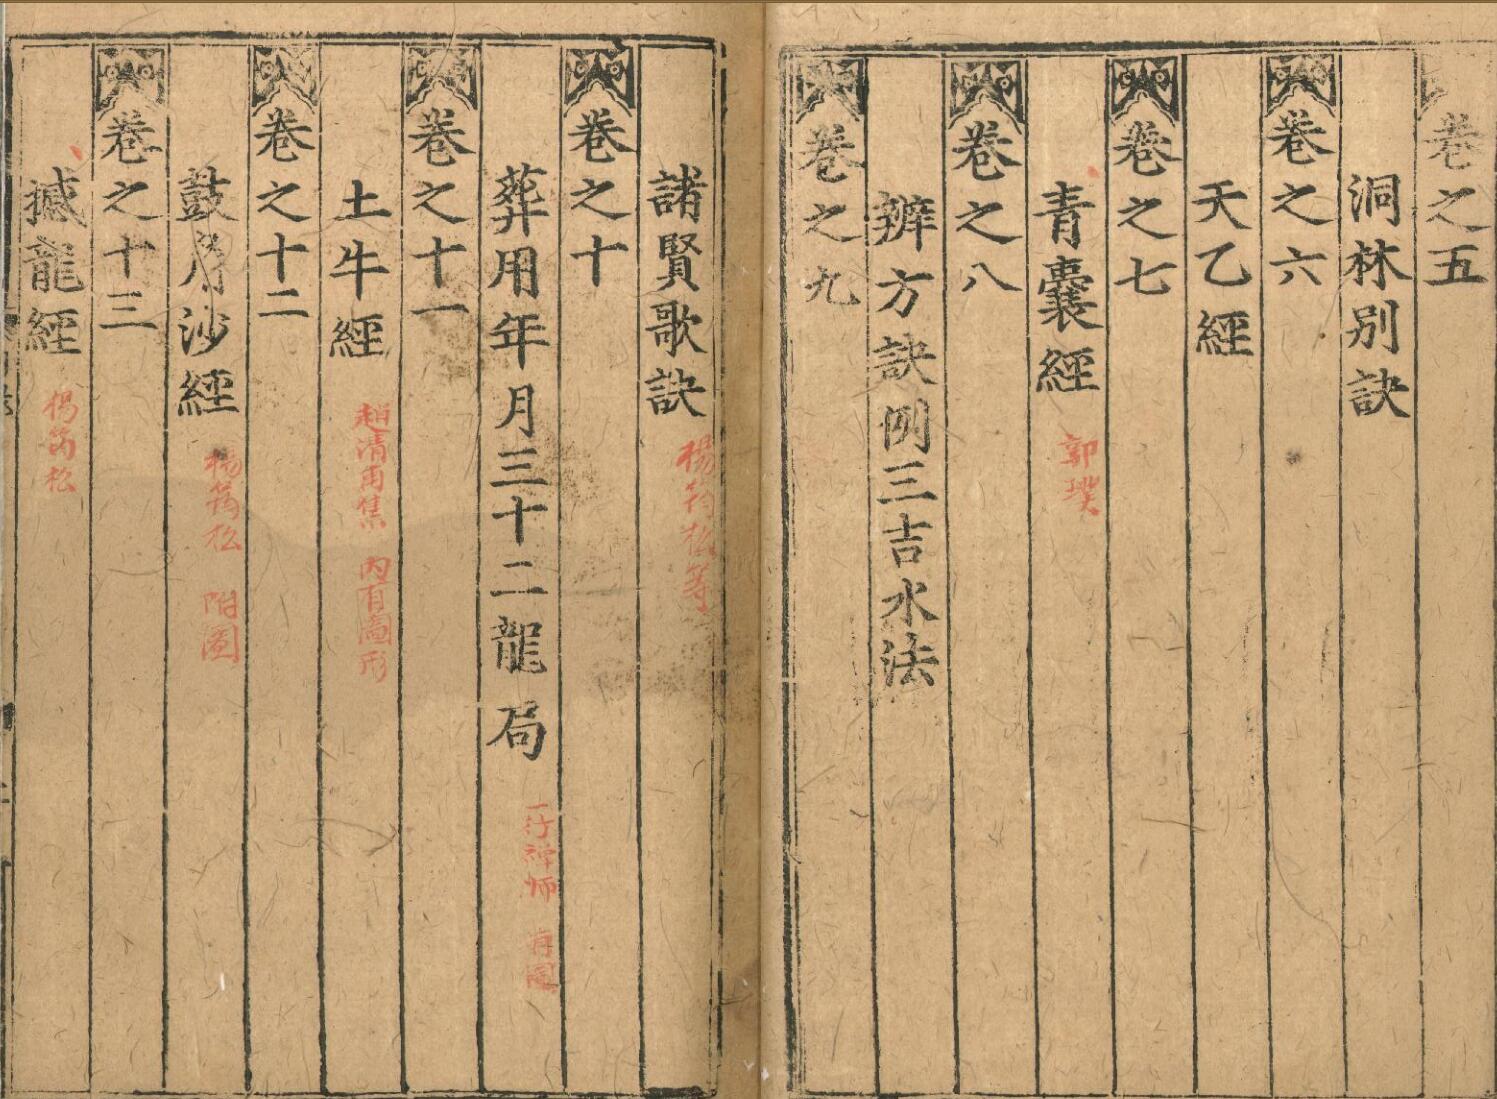 卷之五
洞林別訣
卷之六
天乙經
卷之七
青囊經 郭璞
卷之八
辨方訣例三吉水法
卷之九
諸賢歌訣 楊筠松等
卷之十
葬用年月三十二龍局 一行禪師 有圖
卷之十一
土牛經 趙清甫集 內有圖形
卷之十二
鼓角沙經 楊筠松 附圖
卷之十三
撼龍經 楊筠松